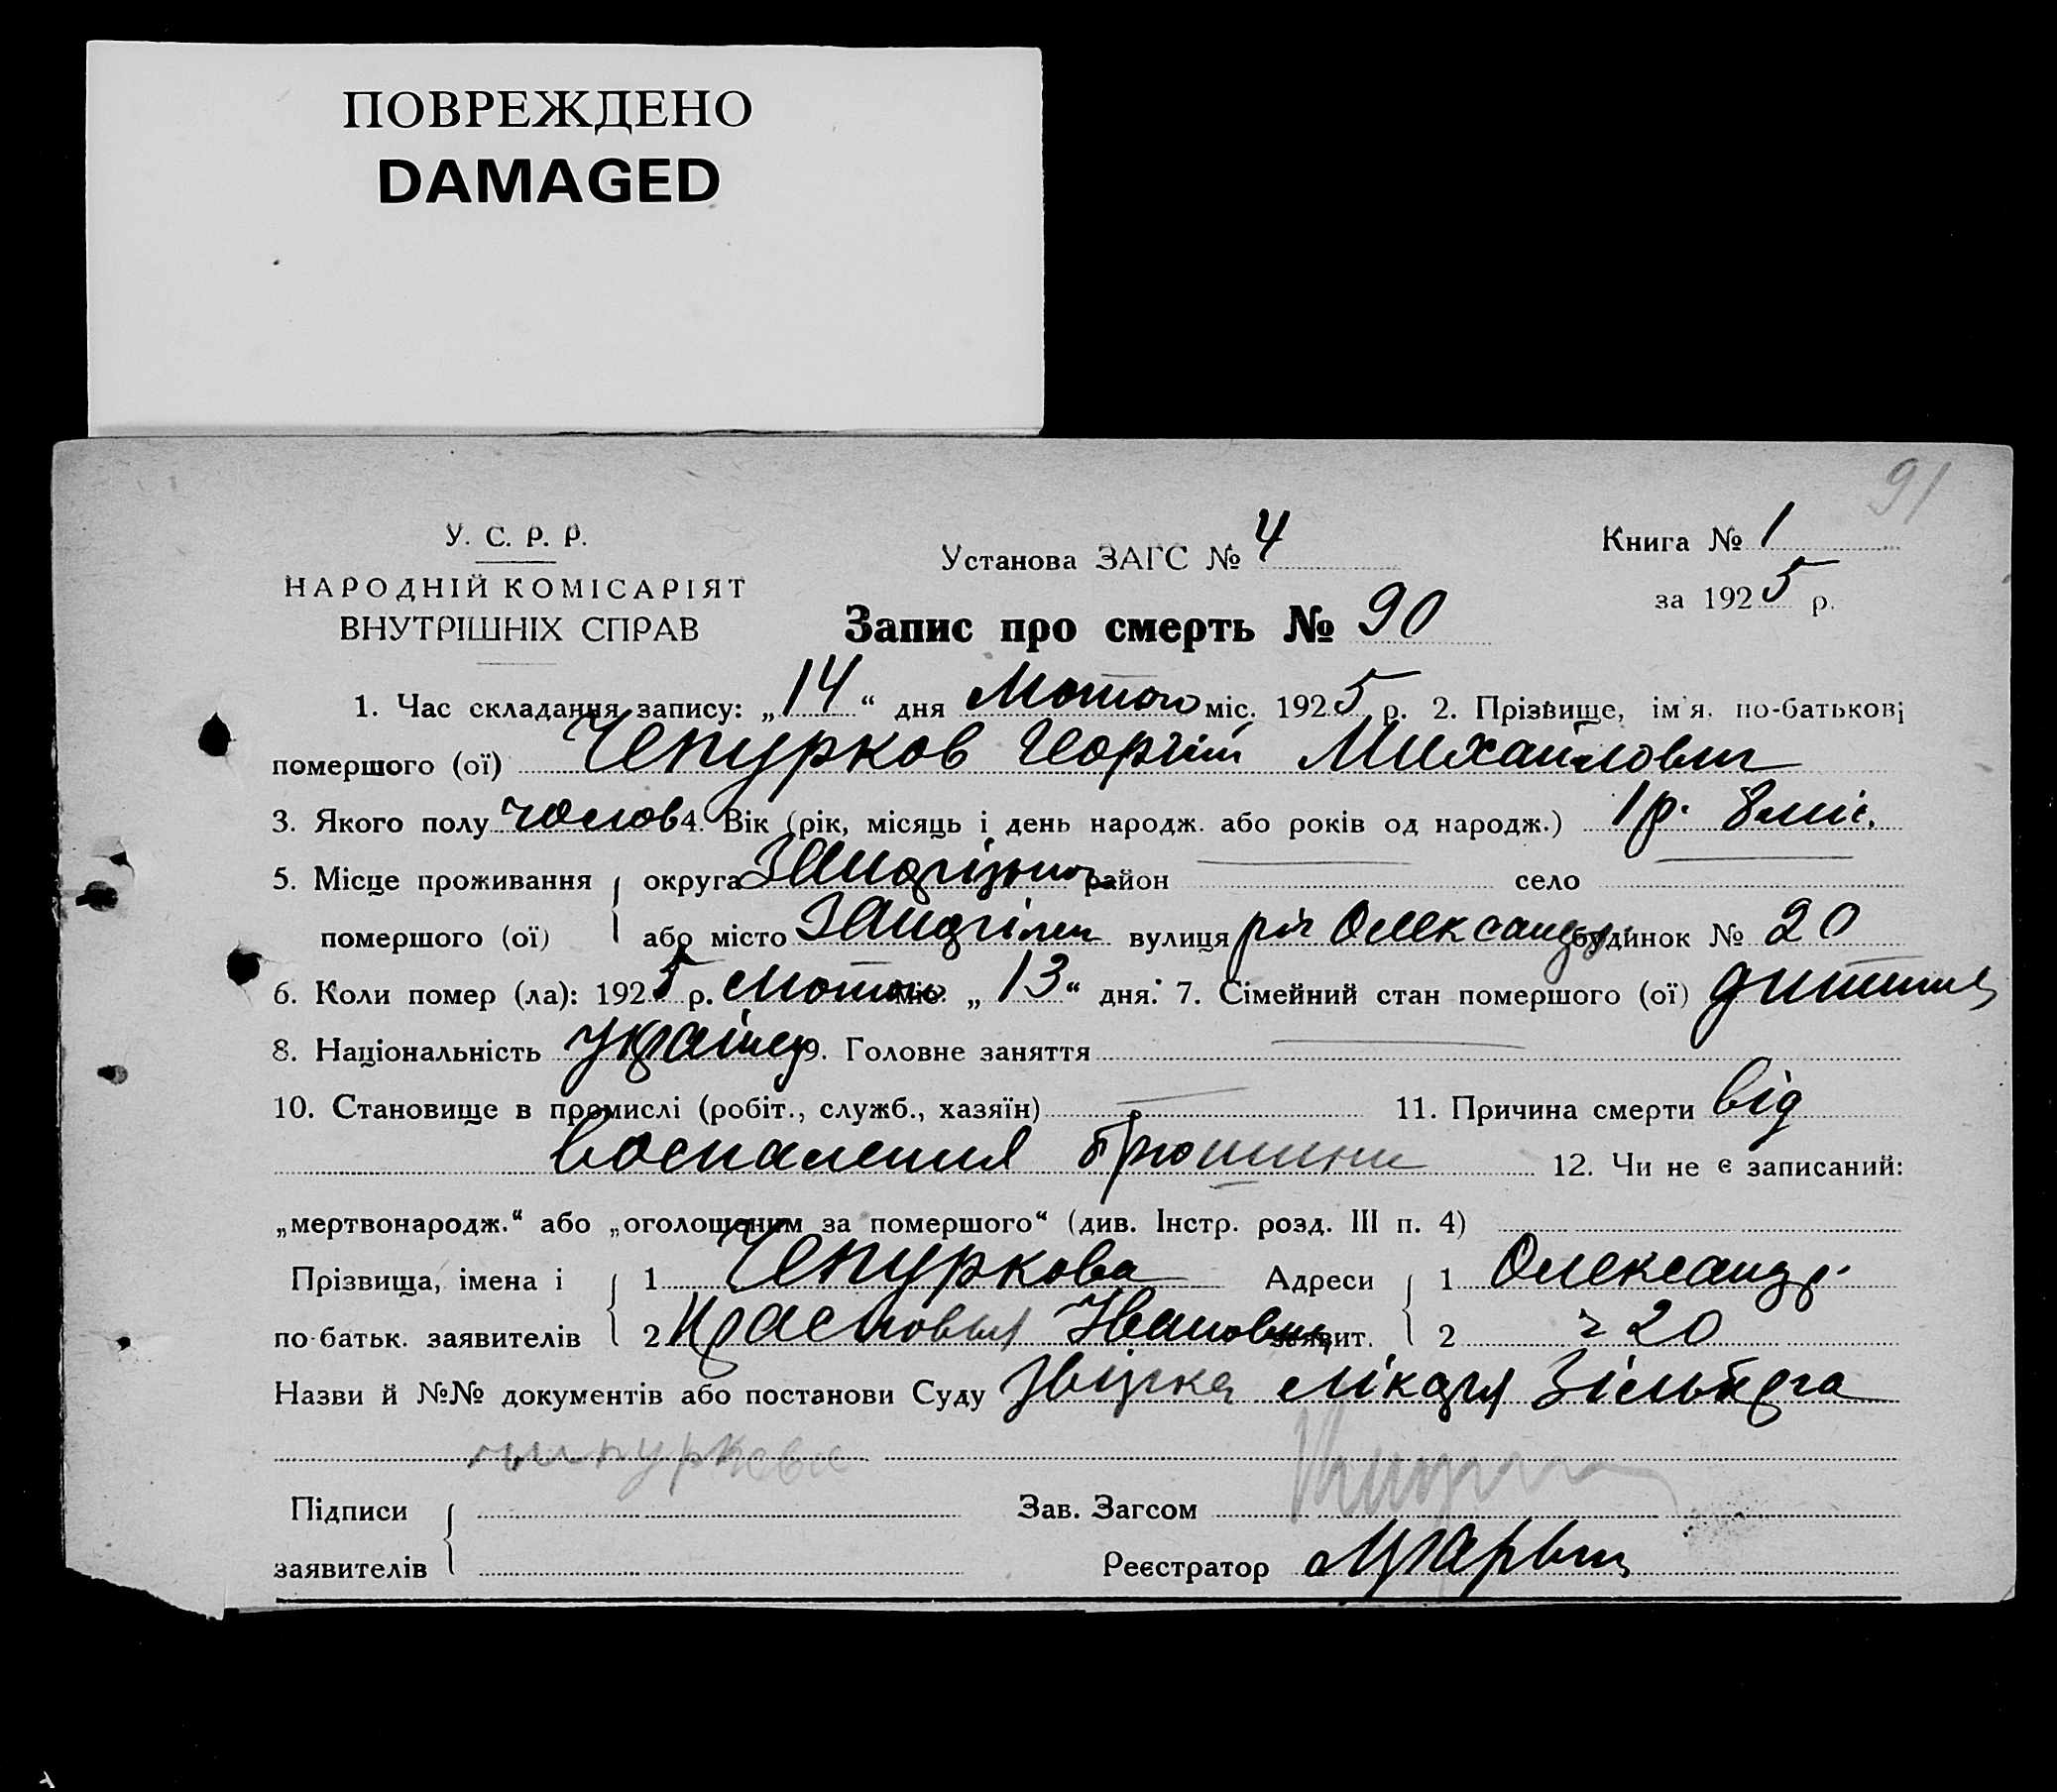 ПОВРЕЖДЕНО
DAMAGED
91
У. С. Р. Р.
НАРОДНІЙ КОМІСАРІЯТ
ВНУТРІШНІХ СПРАВ
Установа ЗАГС № 4
Книга № 1
за 1925 р.
Запис про смерть № 90
1. Час складання запису: „14“ дня Лютого міс. 1925 р. 2. Прізвище, ім'я, по-батькові
помершого (ої) Чепурков Георгій Михайлович
3. Якого полу чолов 4. Вік (рік, місяць і день народж. або років од народж.) 1 р. 8 міс.
5. Місце проживання округа район село
помершого (ої) або місто вулиця ріг Олександр будинок № 20
6. Коли помер (ла): 1925 р. Лютого міс. „13“ дня. 7. Сімейний стан помершого (ої) дитина
8. Національність українец 9. Головне заняття
10. Становище в промислі (робіт., служб., хазяїн) 11. Причина смерти від
воспаления брюшини 12. Чи не є записаний:
„мертвонародж.“ або „оголошеним за помершого“ (див. Інстр. розд. III п. 4)
Прізвища, імена і 1 Чепуркова Адреси 1 Олександр.
по-батьк. заявителів 2 Ивановна заявит. 2 20
Назви й №№ документів або постанови Суду Звістка лікаря Зільберга
чипуркова
Підписи Зав. Загсом
заявителів Реєстратор